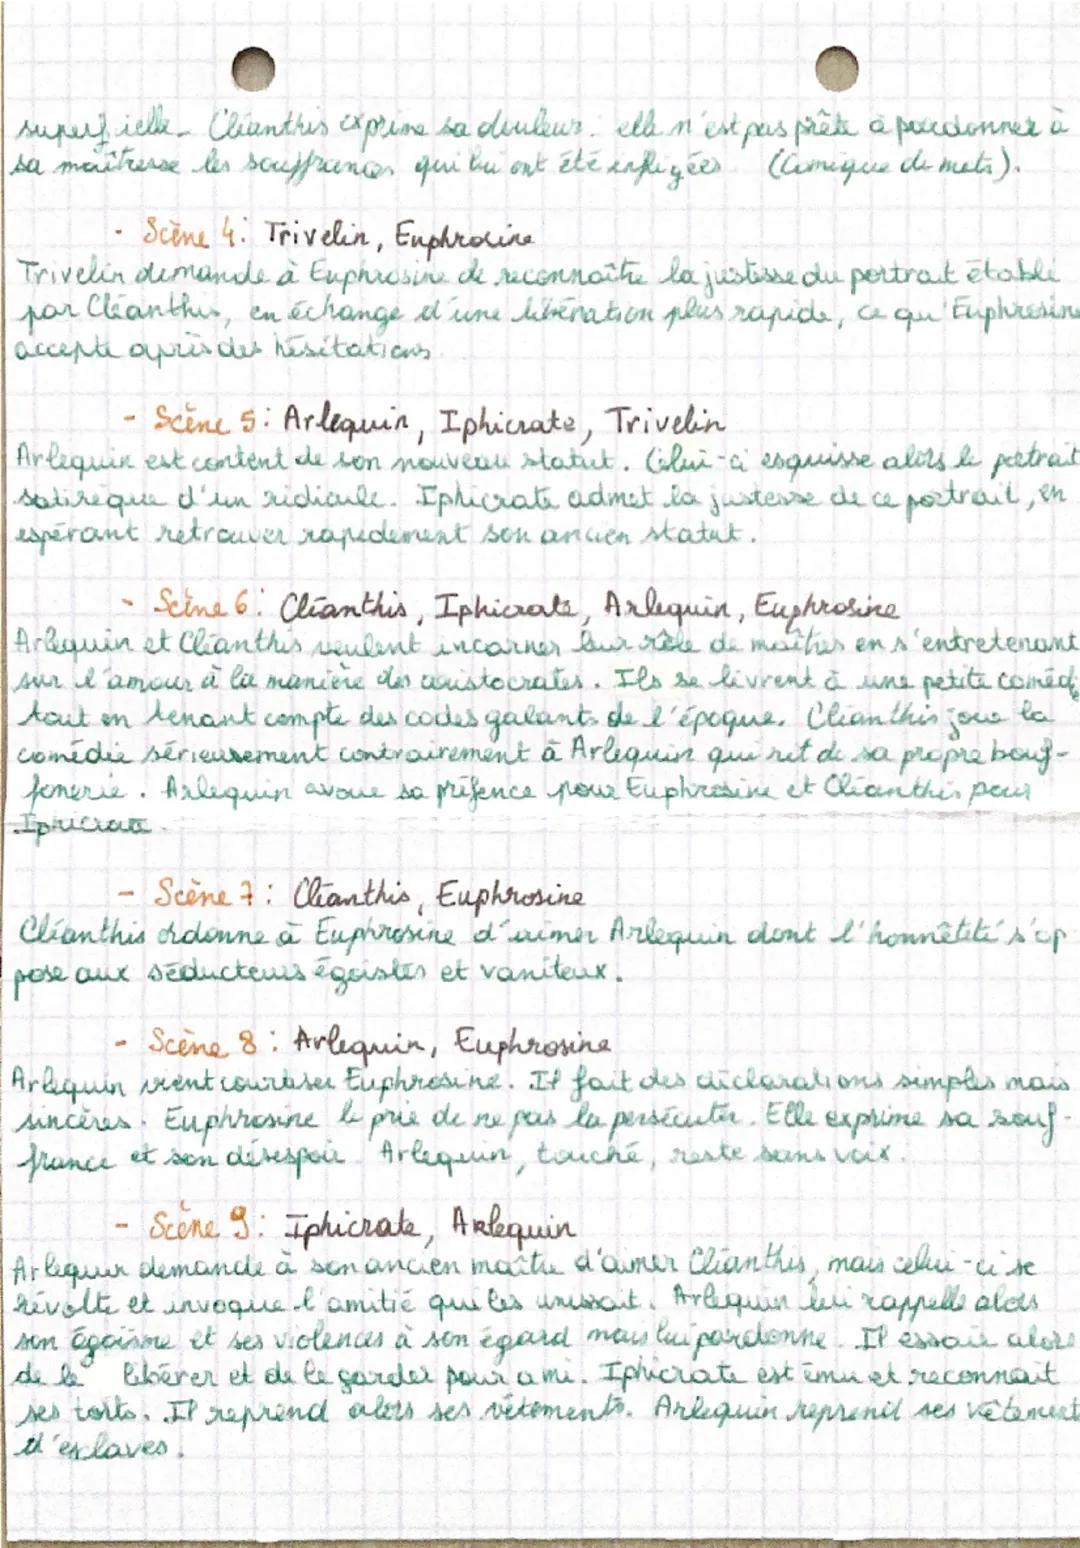 superficielle. Cléanthis exprime sa douleur : elle n'est pas prête à pardonner à
sa maîtresse les souffrances qui lui ont été infligées (Comique de mots).
- Scène 4 : Trivelin, Euphrosine
Trivelin demande à Euphrosine de reconnaître la justesse du portrait établi
par Cléanthis, en échange d'une libération plus rapide, ce qu'Euphrosine
accepte après des hésitations
- Scène 5 : Arlequin, Iphicrate, Trivelin
Arlequin est content de son nouveau statut. Celui-ci esquisse alors le portrait
satirique d'un ridicule. Iphicrate admet la justesse de ce portrait, en
espérant retrouver rapidement son ancien statut.
- Scène 6 : Cléanthis, Iphicrate, Arlequin, Euphrosine
Arlequin et Cléanthis veulent incarner leur rôle de maîtres en s'entretenant
sur l'amour à la manière des aristocrates. Ils se livrent à une petite coméd
tout en tenant compte des codes galants de l'époque. Cléanthis joue la
comédie sérieusement contrairement à Arlequin qui rit de sa propre bouf-
fonerie. Arlequin avoue sa préfence pour Euphrosine et Cléanthis pour
Ipricrate.
- Scène 7 : Cléanthis, Euphrosine
Cléanthis ordonne à Euphrosine d'aimer Arlequin dont l'honnêtité s'op
pose aux séducteurs égoistes et vaniteux.
- Scène 8 : Arlequin, Euphrosine
Arlequin vient courtiser Euphrosine. Il fait des déclarations simples mais
sincères. Euphrosine le prie de ne pas la persécuter. Elle exprime sa souf-
france et son désespoir. Arlequin, touché, reste sans voix.
- Scène 9 : Iphicrate, Arlequin
Arlequin demande à son ancien maître d'aimer Cléanthis, mais celui-ci se
révolte et invoque l'amitié qui les unissait. Arlequin lui rappelle alors
son égoïsme et ses violences à son égard mais lui pardonne. Il essaie alors
de le libérer et de le garder pour ami. Iphicrate est ému et reconnait
ses torts. Il reprend alors ses vêtements. Arlequin reprend ses vêtement
d'esclaves.